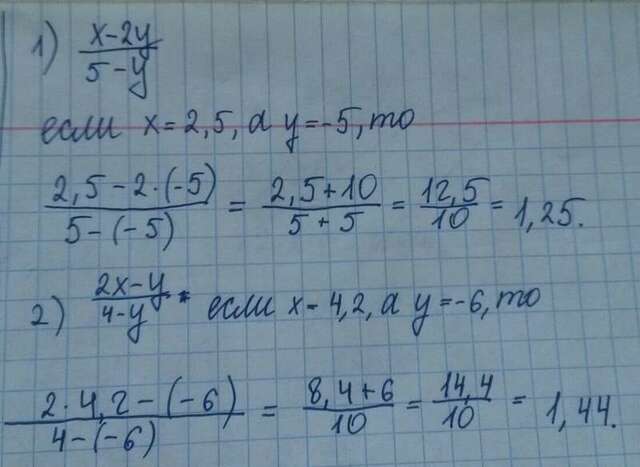 1) (x-2y)/(5-y)
если x=2,5, а y=-5, то
(2,5-2·(-5))/(5-(-5)) = (2,5+10)/(5+5) = 12,5/10 = 1,25.
2) (2x-y)/(4-y) если x-4,2, а y=-6, то
(2·4,2-(-6))/(4-(-6)) = (8,4+6)/10 = 14,4/10 = 1,44.